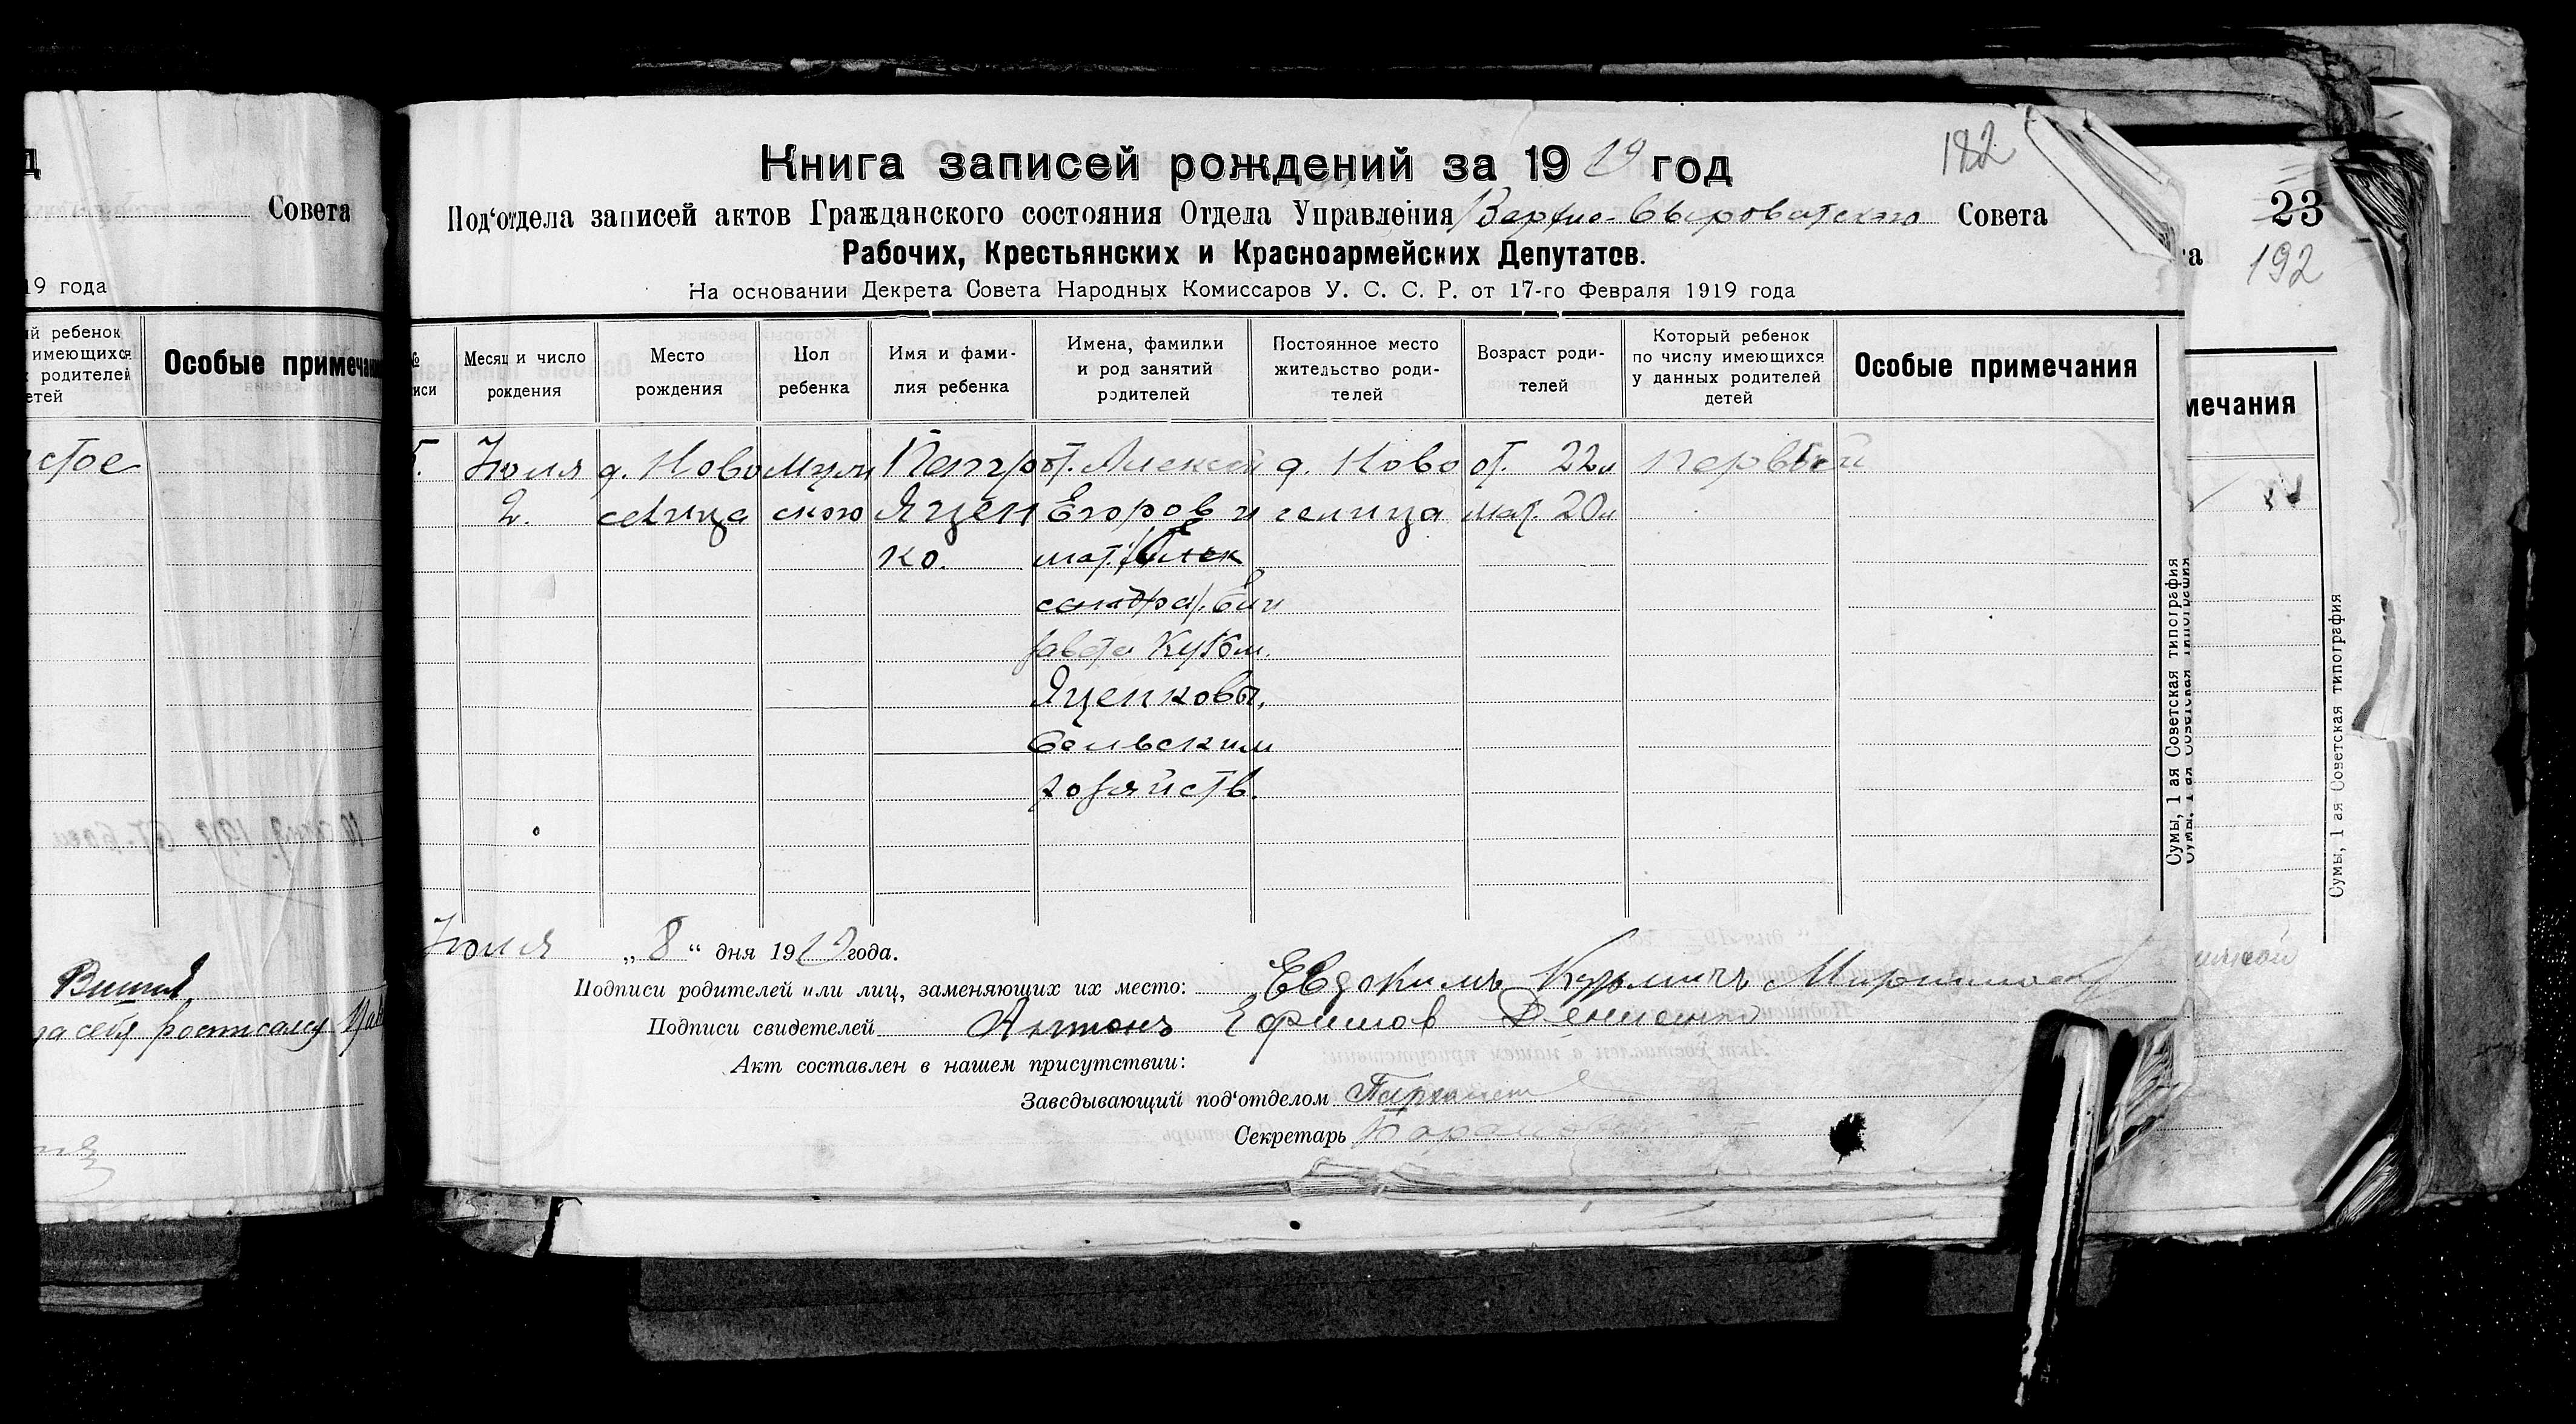 д
Совета
19 года
й ребенок
имеющихся
родителей
етей
Особые примечан
стое
за себя росписался
Книга записей рождений за 19 19 год
182
Под‘отдела записей актов Гражданского состояния Отдела Управления Верхне-Сыроватского Совета
Рабочих, Крестьянских и Красноармейских Депутатов.
На основании Декрета Совета Народных Комиссаров У. С. С. Р. от 17-го Февраля 1919 года
№
иси
Месяц и число
рождения
Место
рождения
Пол
ребенка
Имя и фами-
лия ребенка
Имена, фамилии
и род занятий
родителей
Постоянное место
жительство роди-
телей
Возраст роди-
телей
Который ребенок
по числу имеющихся
у данных родителей
детей
Особые примечания
Июля
2.
д. Ново
селица
Муж
ского
Петр
Яцен
ко.
от. Алексей
Егоров и
мат. Алек
сандра. Ели
завета Кузьм.
Яценковы,
Сельским
хозяйств.
д. Ново
селица
от. 22л
мат. 20л
первый
Июля „ 8 “ дня 1919 года.
Подписи родителей или лиц, заменяющих их место: Евдокимъ Кузьмичъ
Подписи свидетелей Антонъ Ефимов Денисенко
Акт составлен в нашем присутствии:
Заведывающий под‘отделом
Секретарь
Сумы, 1 ая Советская типография
23
192
а
мечания
Сумы, 1 ая Советская типография